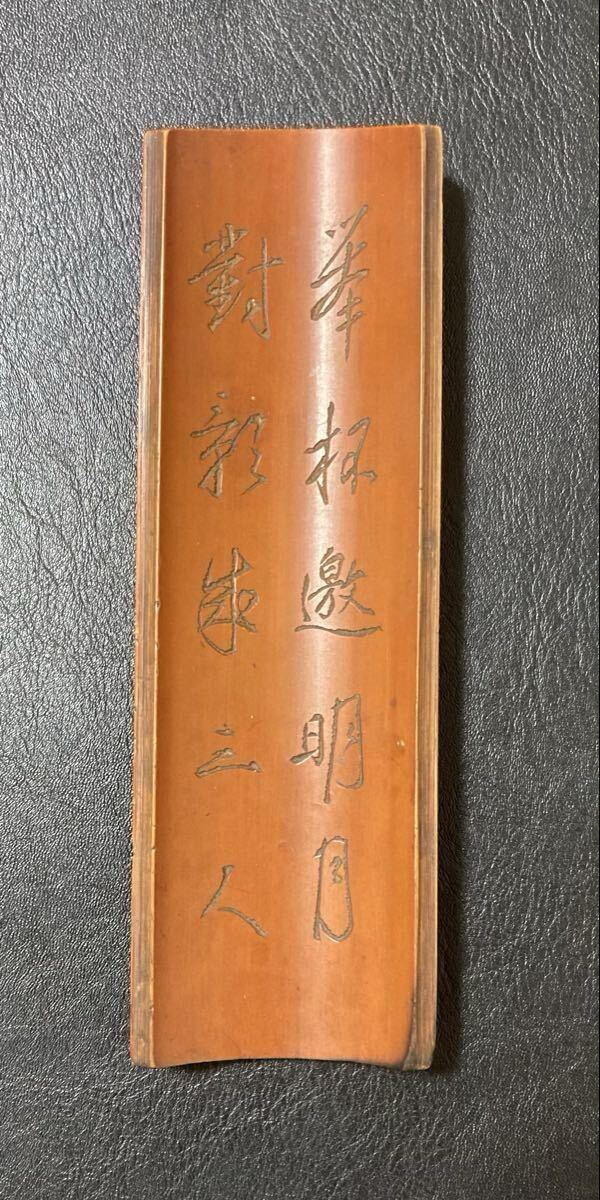 举杯邀明月
對影成三人